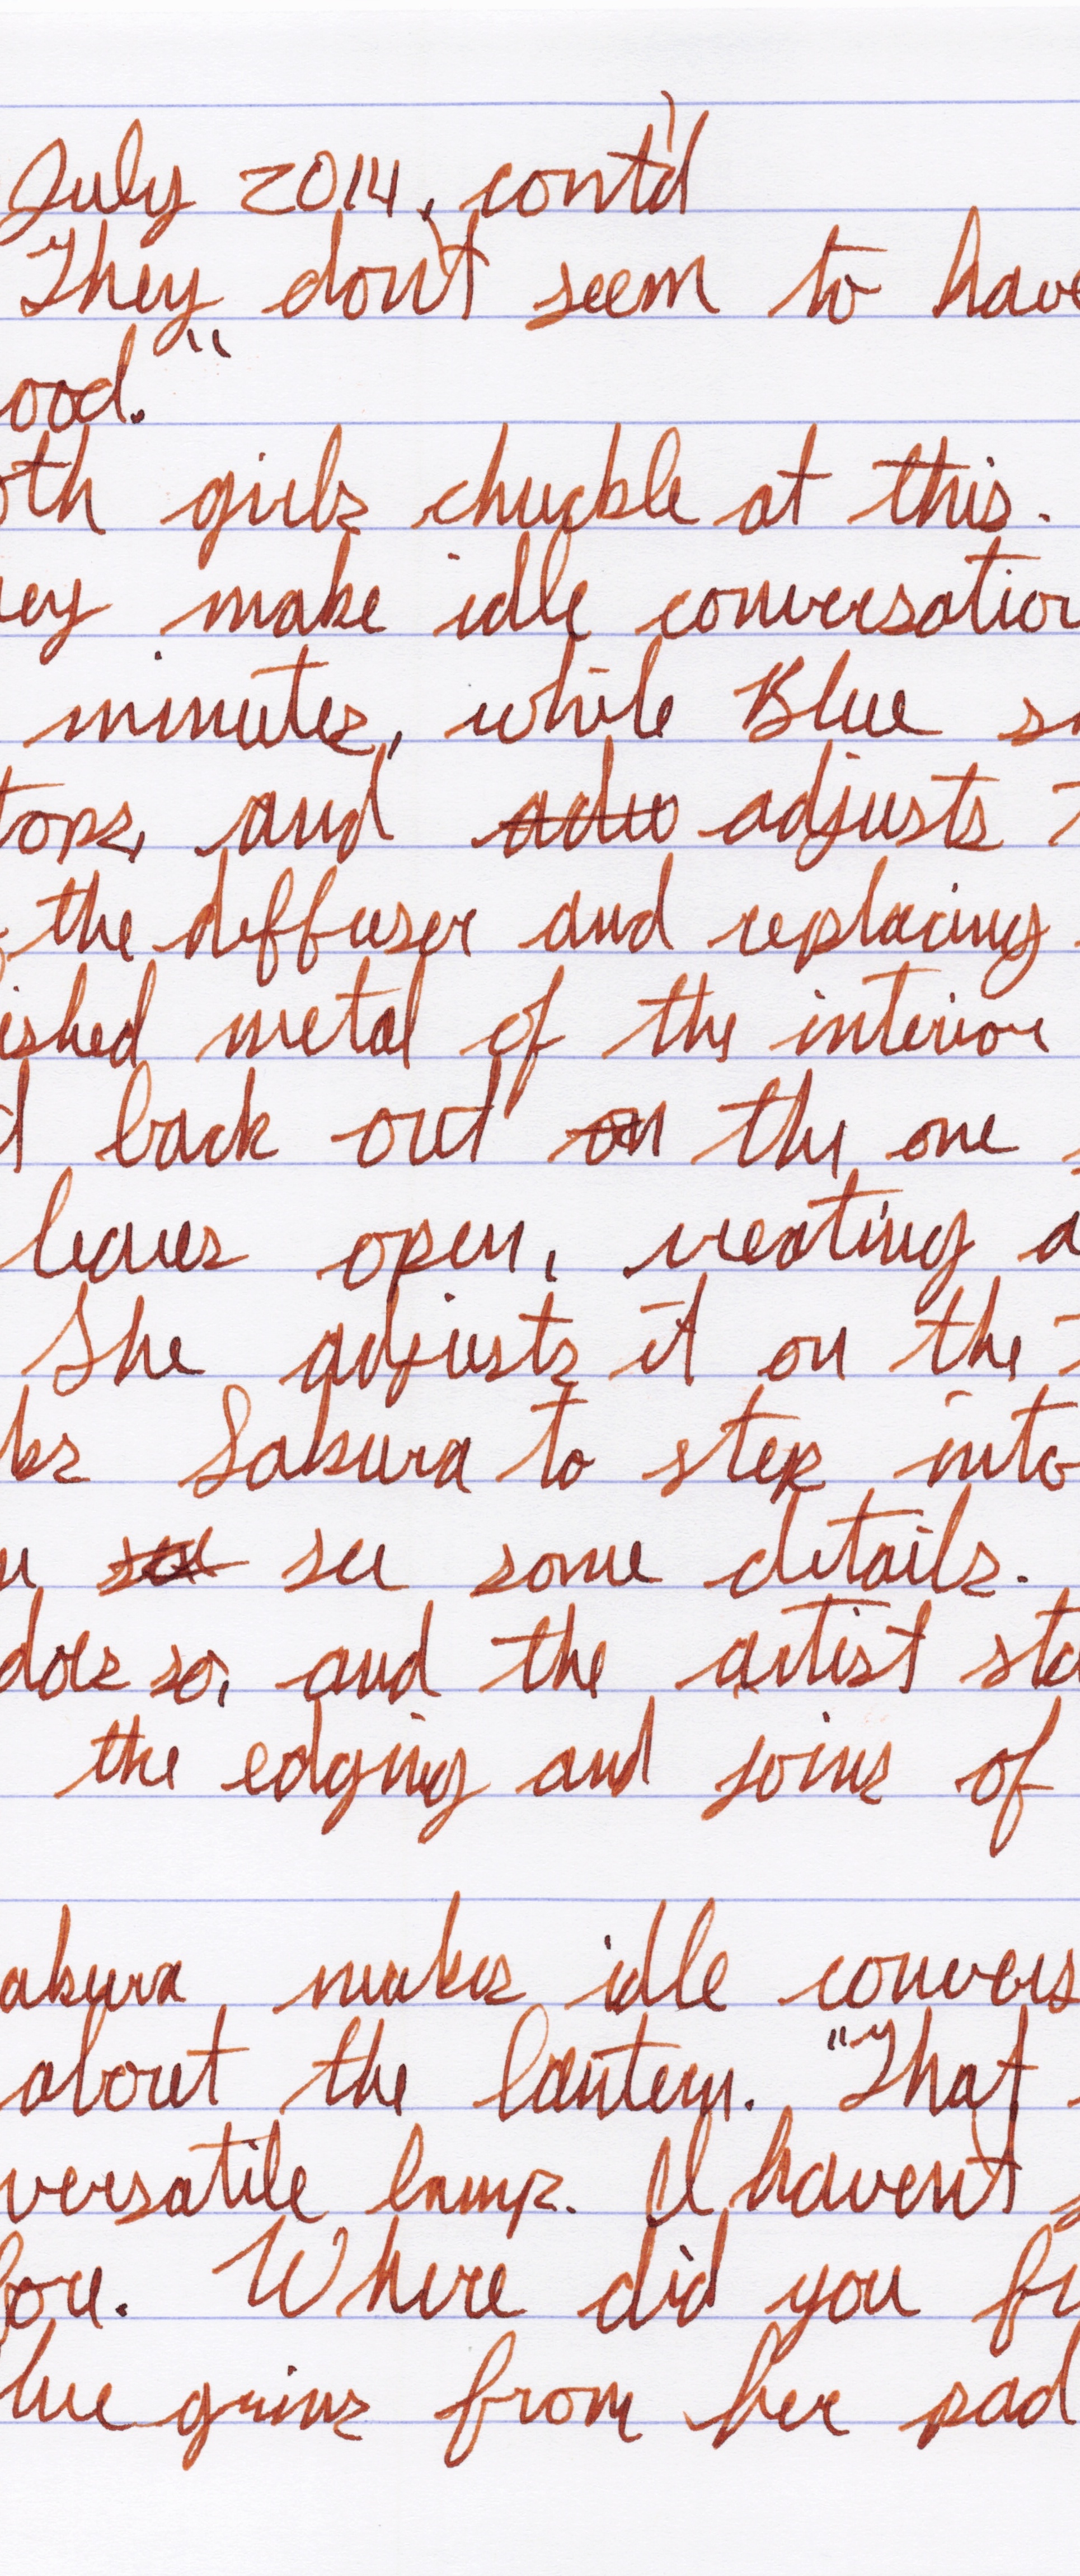 July 2014, cont'd
They don't seem to have
ood."
oth girls chuckle at this.
ey make idle conversation
minutes, while Blue s
tops, and adju adjusts
the diffuser and replacing
ished metal of the interior
d back out on the one
leaves open, creating a
She adjusts it on the
ks Sakura to step into
see some details.
does so, and the artist sta
the edging and joins of
akura makes idle convers
about the lantern. "That
versatile lamp. I haven't
fore. Where did you fi
lue grins from her pad